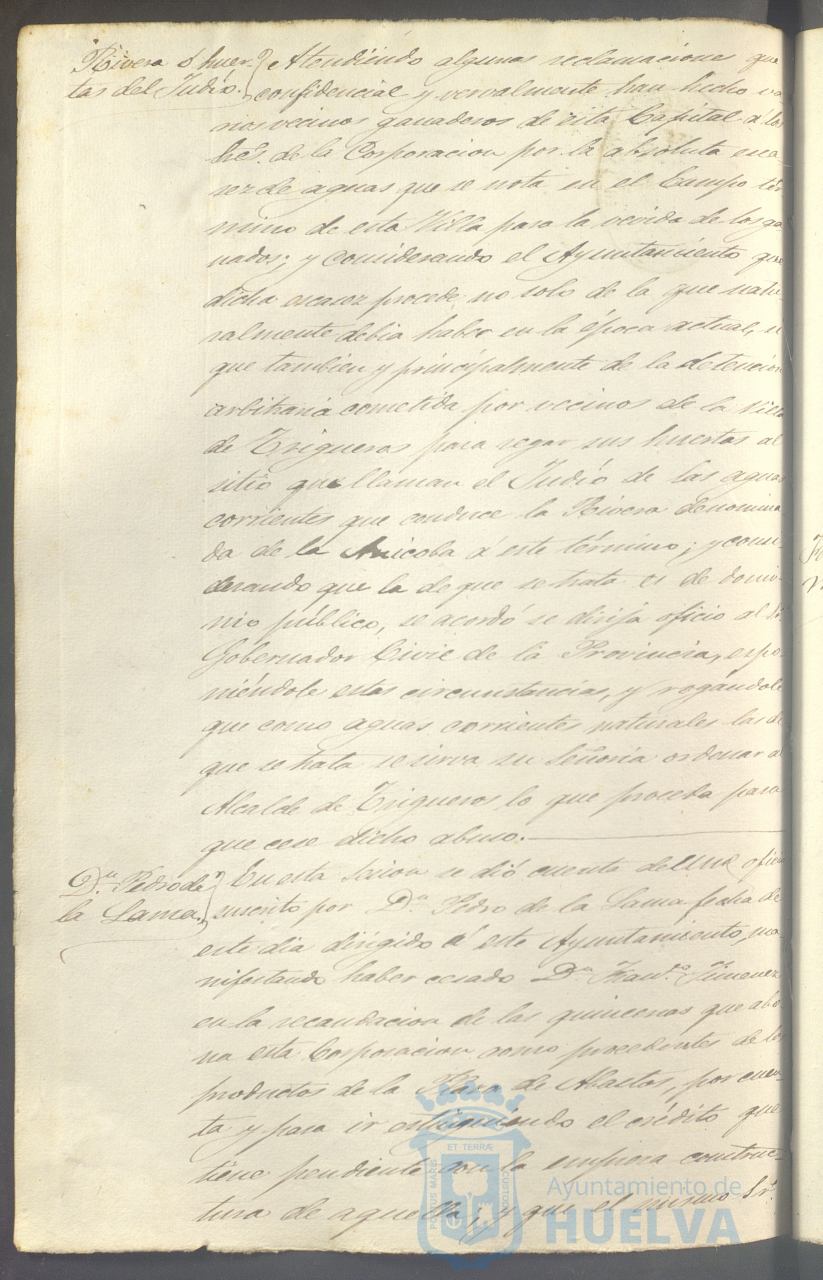 Rivera ó huer-
tas del Judío.
Atendiendo algunas reclamaciones que
confidencial y vervalmente han hecho va
rios vecinos ganaderos de esta Capital á los
Sres. de la Corporacion por la absoluta esca
sez de aguas que se nota en el Campo tér
mino de esta Villa para la vevida de los ga
nados; y considerando el Ayuntamiento que
dicha escasez procede, no solo de la que natu
ralmente debia haber en la época actual, si
que tambien y principalmente de la detencion
arbitraria cometida por vecinos de la Villa
de Trigueros para regar sus huertas al
sitio que llaman el Judío de las aguas
corrientes que conduce la Rivera denomina
da de la Anicoba á este término; y consi-
derando que la de que se trata es de domi-
nio público, se acordó se dirija oficio al Sr.
Gobernador Civil de la Provincia, espo
niéndole estas circunstancias, y rogándole
que como aguas corrientes naturales las de
que se trata se sirva su Señoría ordenar al
Alcalde de Trigueros lo que proceda para
que cese dicho abuso.
Dn. Pedro de
la Lama.
En esta sesion se dió cuenta de una oficio
suscrito por Dn. Pedro de la Lama fecha de
este dia dirigido á este Ayuntamiento, ma-
nifestando haber cesado Dn. Franco. Jimenez
en la recaudacion de las quincenas que abo
na esta Corporacion como procedentes de los
productos de la Plaza de Abastos, por cuen-
ta y para ir estinguiendo el crédito que
tiene pendiente con la empresa construc-
tura de aquella; y que el mismo Sr.
PORTUS MARIS ET TERRAE CUSTODIA
Ayuntamiento de
HUELVA